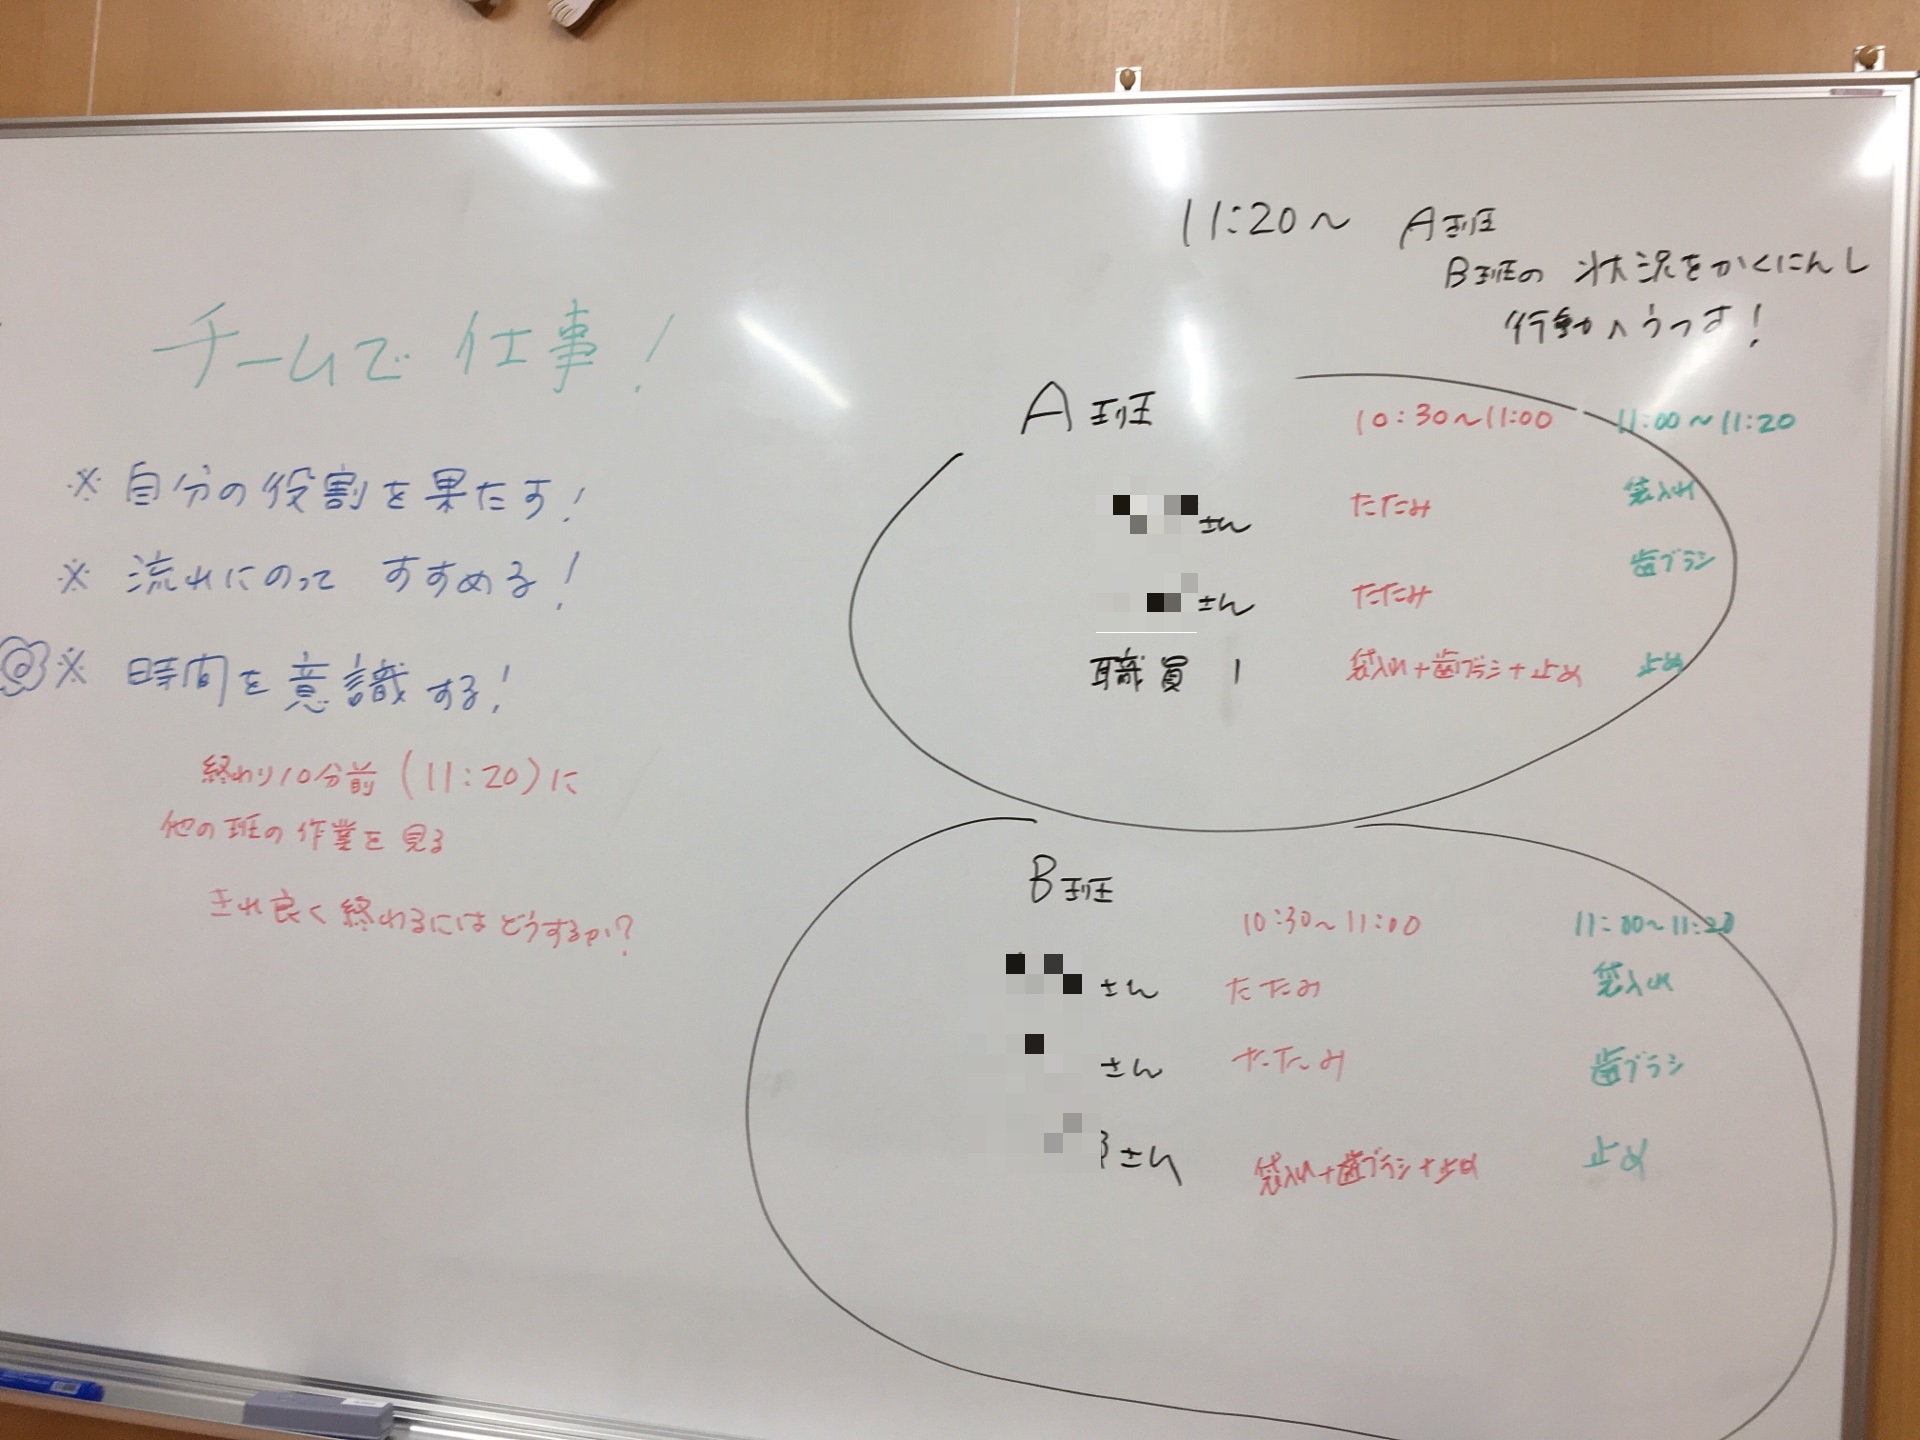 チームで仕事!
※ 自分の役割を果たす!
※ 流れにのって すすめる!
※ 時間を意識する!
終わり10分前(11:20)に
他の班の作業を見る
きれ良く終わるにはどうするか?
11:20〜 A班
B班の 状況をかくにんし
行動へうつす!
A班 10:30〜11:00 11:00〜11:20
さん たたみ 袋入れ
さん たたみ 歯ブラシ
職員 1 袋入れ+歯ブラシ+止め 止め
B班 10:30〜11:00 11:00〜11:20
さん たたみ 袋入れ
さん たたみ 歯ブラシ
さん 袋入れ+歯ブラシ+止め 止め